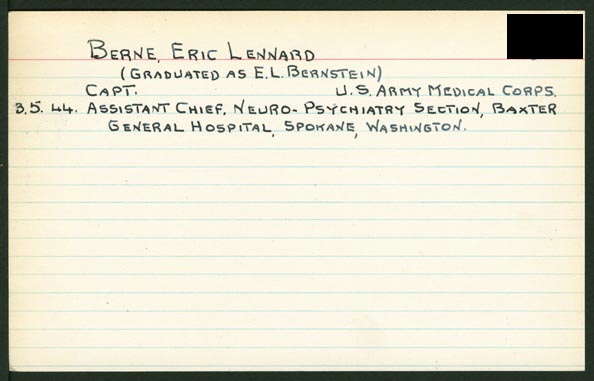 BERNE, ERIC LENNARD
(GRADUATED AS E.L. BERNSTEIN)
CAPT. U.S. ARMY MEDICAL CORPS.
3.5.44. ASSISTANT CHIEF, NEURO-PSYCHIATRY SECTION, BAXTER
GENERAL HOSPITAL, SPOKANE, WASHINGTON.